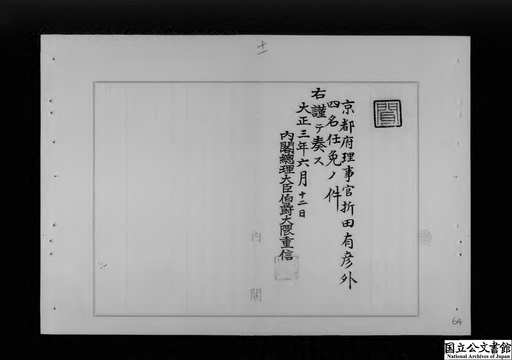 十一
聞
京都府理事官折田有彦外
四名任免ノ件
右謹テ奏ス
大正三年六月十二日
内閣總理大臣伯爵大隈重信
内閣
64
国立公文書館
National Archives of Japan